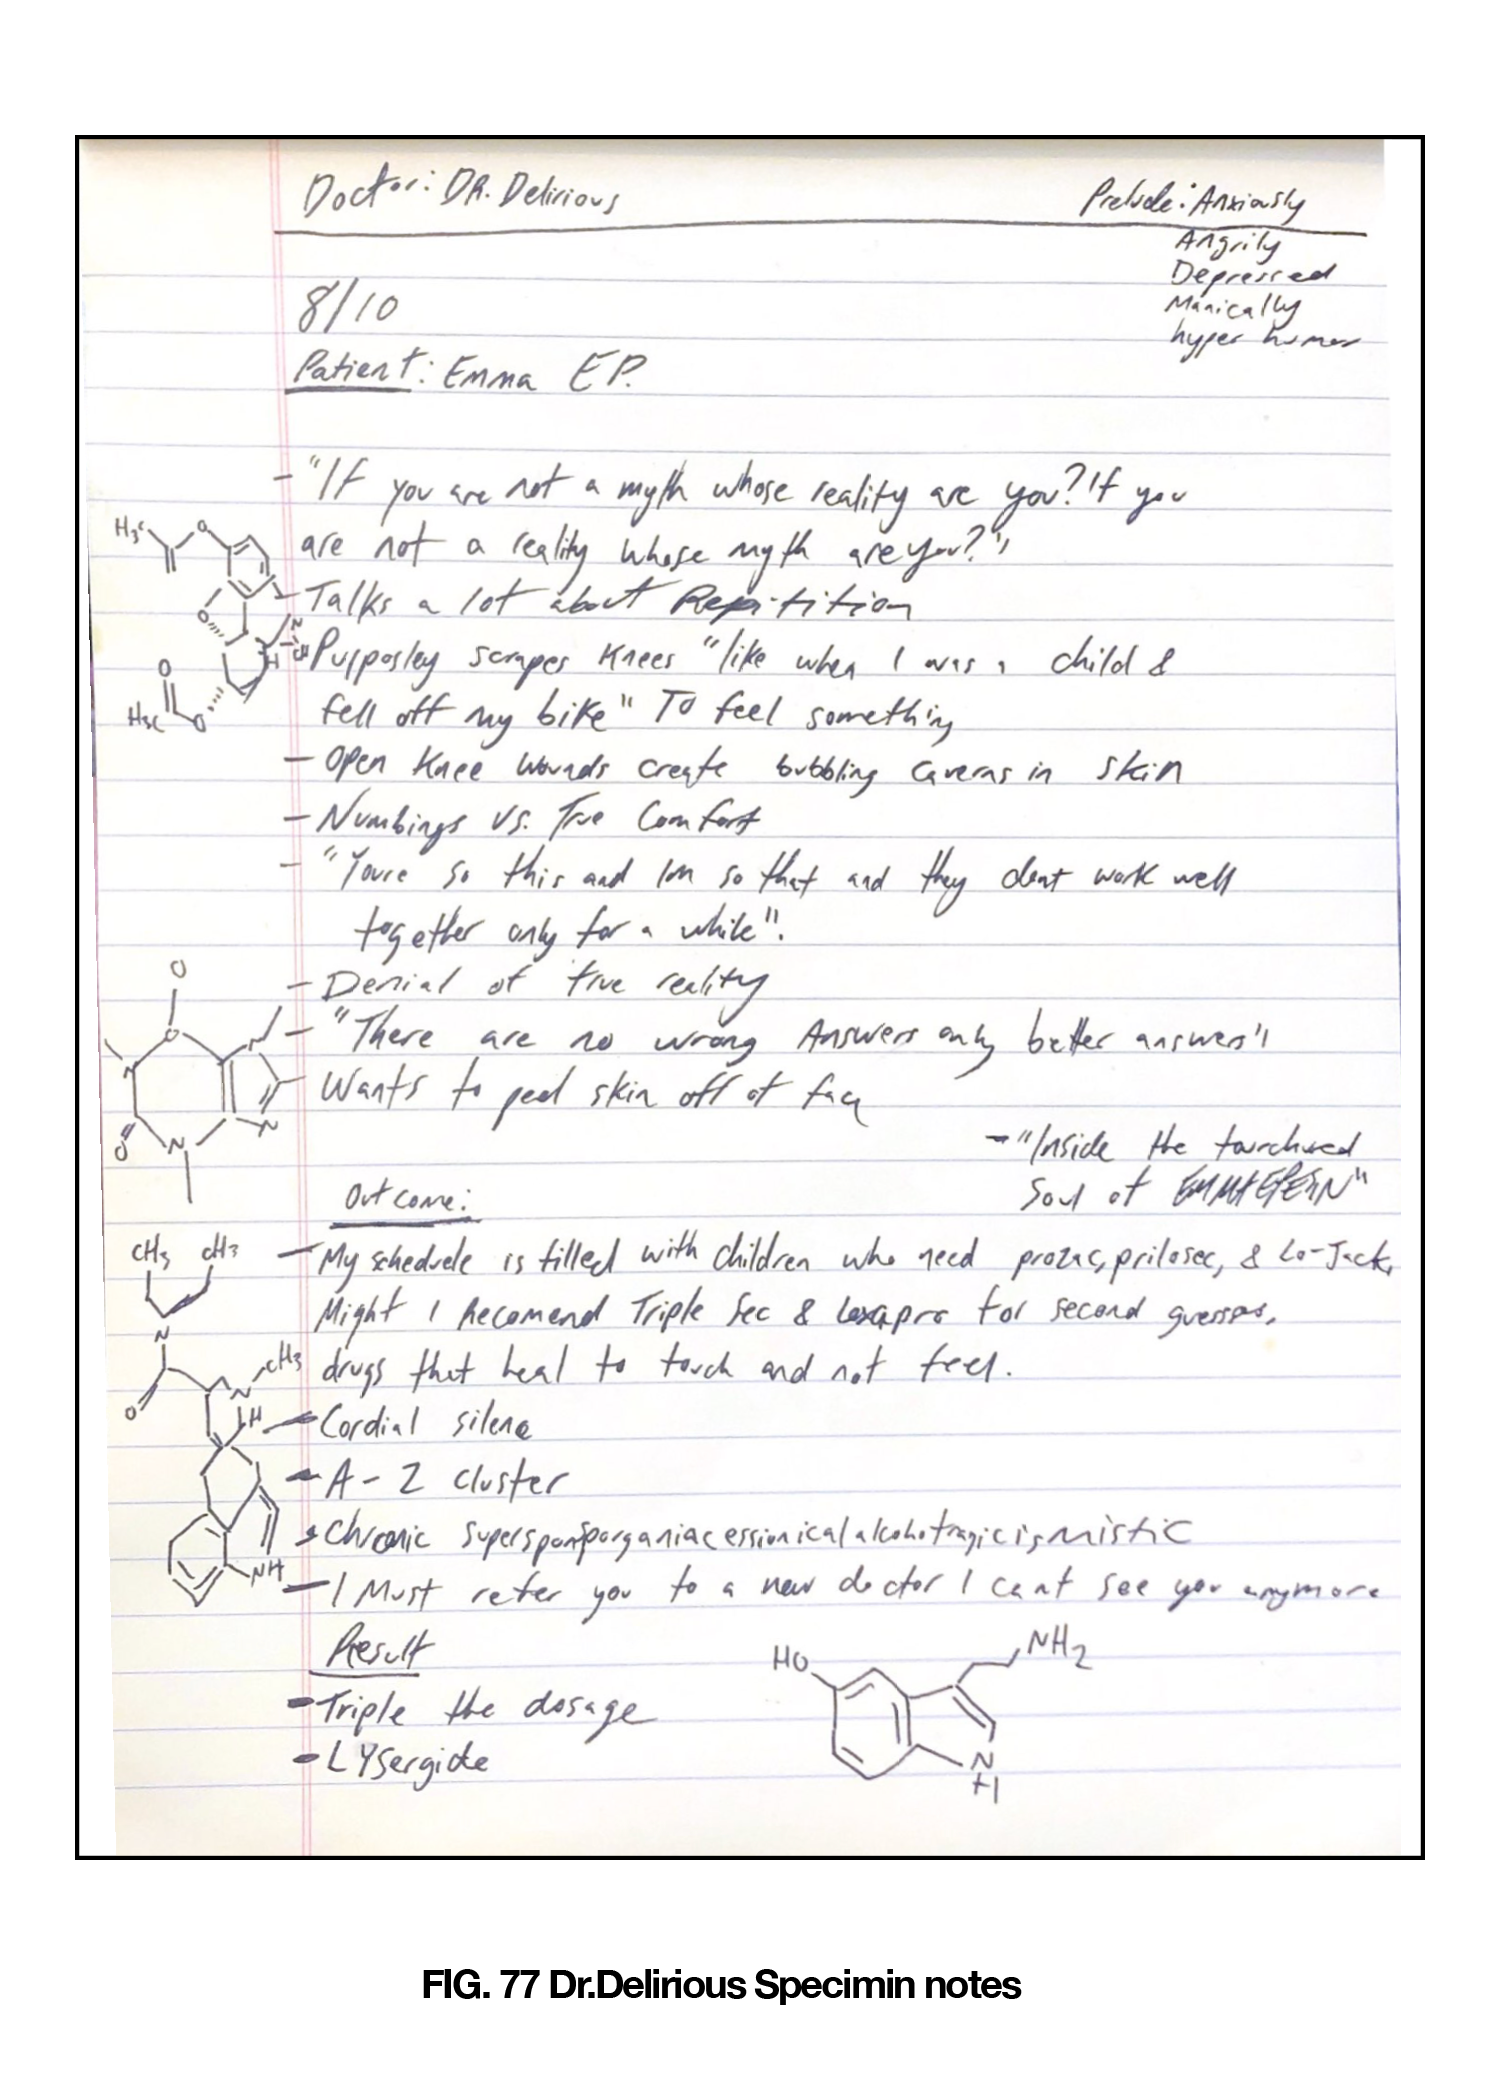 Doctor: DR. Delirious
Prelude: Anxiously
Angrily
Depressed
Manically
hyper humor
8/10
Patient: Emma EP.
- "If you are not a myth whose reality are you? If you
are not a reality whose myth are you?"
- Talks a lot about Repitition
- Purposley scrapes Knees "like when I was a child &
fell off my bike" To feel something
- Open Knee wounds create bubbling caverns in skin
- Numbings vs. True Comfort
- "Youre so this and Im so that and they dont work well
together only for a while".
- Denial of true reality
- "There are no wrong Answers only better answers"
- Wants to peel skin off of face
- "Inside the tourchured
Soul of
Outcome:
- My schedule is filled with children who need prozac, prilosec, & Lo-Jack,
Might I Recomend Triple Sec & Lexapro for second guesses,
drugs that heal to touch and not feel.
- Cordial silence
- A - Z cluster
- Chronic
- I Must refer you to a new doctor I cant see you anymore
Result
- Triple the dosage
- LYsergide
H3C
O
O
N
H
O
H3C
O
O
N
N
O
N
N
CH3 CH3
N
CH3
N
O
H
NH
HO
NH2
N
H
FIG. 77 Dr.Delirious Specimin notes